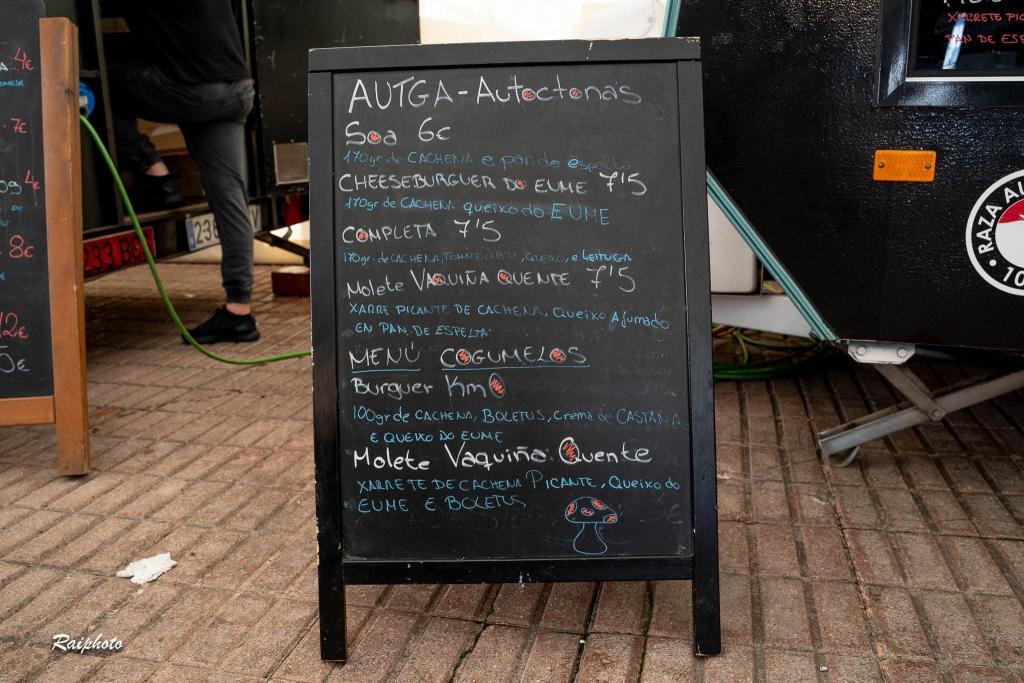 AUTGA - Autoctonas
Soa 6€
170gr de CACHENA e pan de espelta
CHEESEBURGUER DO EUME 7'5
170gr de CACHENA queixo do EUME
COMPLETA 7'5
170gr. de CACHENA, TOMATE, QUEIXO, e LEITUGA
Molete VAQUIÑA QUENTE 7'5
XARRE PICANTE DE CACHENA, Queixo Afumado
EN PAN DE ESPELTA
MENÚ COGUMELOS
Burguer Km0
100gr de CACHENA, BOLETUS, Crema de CASTAÑA
E QUEIXO DO EUME
Molete Vaquiña Quente
XARRETE DE CACHENA PICANTE, Queixo do
EUME E BOLETUS
4€
7€
4€
8€
12€
XARRETE PIC
PAN DE ESP
RAZA AU
10
233 B
Raiphoto